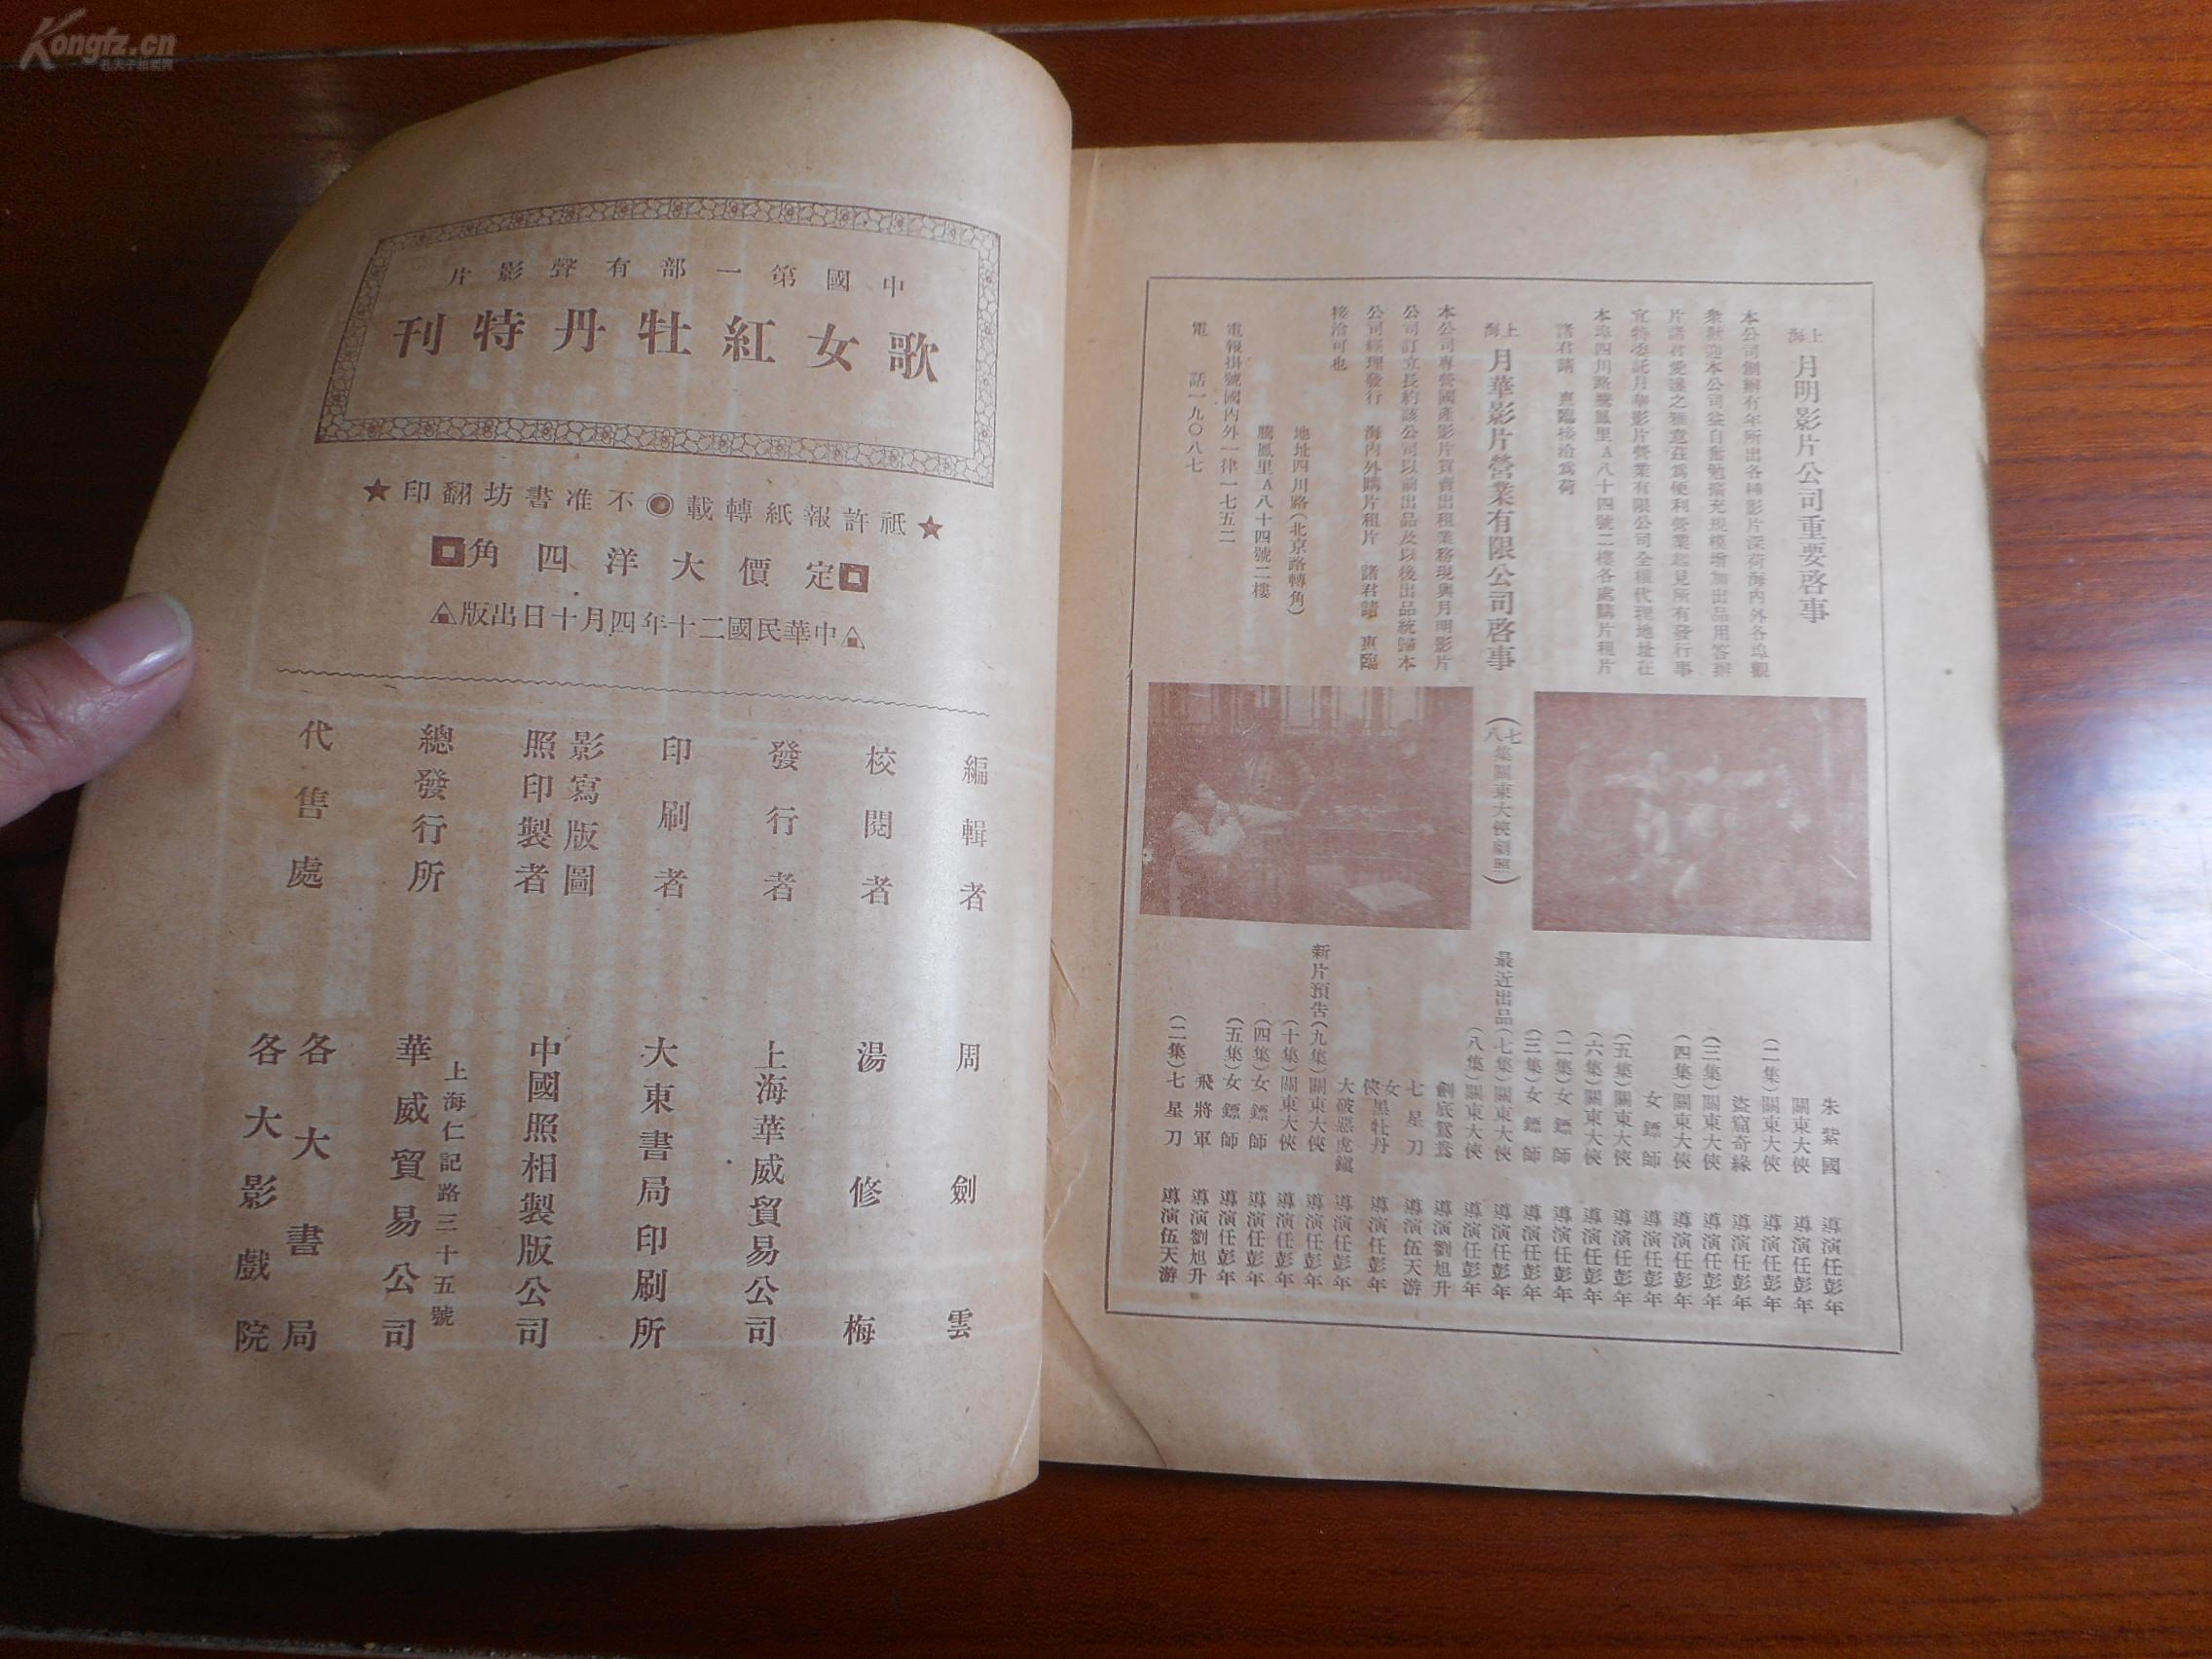 Kongfz.cn
中國第一部有聲影片
歌女紅牡丹特刊
★祗許報紙轉載◉不准書坊翻印★
定價大洋四角
中華民國二十年四月十日出版
編輯者 周劍雲
校閱者 湯修梅
發行者 上海華威貿易公司
印刷者 大東書局印刷所
影寫版圖照印製者 中國照相製版公司
總發行所 上海仁記路三十五號
華威貿易公司
代售處 各大書局
各大影戲院
上海 月明影片公司重要啓事
本公司創辦有年所出各種影片深荷海內外各埠觀
衆歡迎本公司益自奮勉擴充規模增加出品用答辦
片諸君愛護之雅意茲爲便利營業起見所有發行事
宜特委託月華影片營業有限公司全權代理地址在
本埠四川路騰鳳里A八十四號二樓各處購片租片
諸君請 惠臨接洽爲荷
上海 月華影片營業有限公司啓事
本公司專營國產影片買賣出租業務現與月明影片
公司訂立長約該公司以前出品及以後出品統歸本
公司經理發行 海內外購片租片 諸君請 惠臨
接洽可也
地址四川路(北京路轉角)
騰鳳里A八十四號二樓
電報掛號國內外一律一七五二
電話一九〇八七
(七八集關東大俠劇照)
最近出品
朱紫國 導演任彭年
關東大俠 導演任彭年
(二集)關東大俠 導演任彭年
盜窟奇緣 導演任彭年
(三集)關東大俠 導演任彭年
(四集)關東大俠 導演任彭年
女鏢師 導演任彭年
(五集)關東大俠 導演任彭年
(六集)關東大俠 導演任彭年
(二集)女鏢師 導演任彭年
(三集)女鏢師 導演任彭年
(七集)關東大俠 導演任彭年
(八集)關東大俠 導演任彭年
劍底鴛鴦 導演劉旭升
七星刀 導演伍天游
女俠黑牡丹 導演任彭年
大破惡虎鎮 導演任彭年
新片預告
(九集)關東大俠 導演任彭年
(十集)關東大俠 導演任彭年
(四集)女鏢師 導演任彭年
(五集)女鏢師 導演任彭年
飛將軍 導演劉旭升
(二集)七星刀 導演伍天游